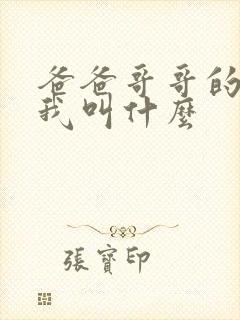 爸爸哥哥的
我叫什麼
張寶印